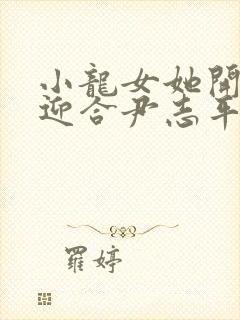 小龍女她開
迎合尹志平
羅婷